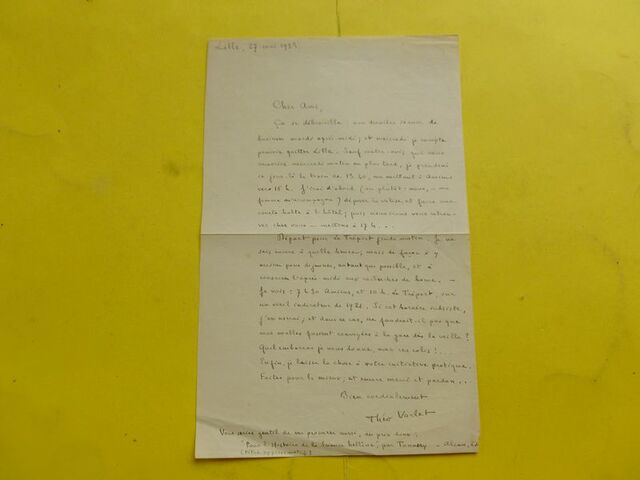 Lille, 27 mai 1923.
Cher Ami,
Ça se débrouille : une dernière séance de
business mardi après-midi ; et mercredi je compte
pouvoir quitter Lille. Sauf contre-avis, que vous
mercredi matin au plus tard, je prendrai
ce jour-là le train de 13.40, me mettant à Amiens
vers 16 h. J'irai d'abord (ou plutôt : nous, – ma
femme m'accompagne) déposer la valise, et faire une
courte halte à l'hôtel ; puis nous irons vous retrou-
ver chez vous – mettons à 17 h...
Départ pour Le Tréport jeudi matin. Je ne
sais encore à quelle heure ; mais de façon à y
arriver pour déjeuner, autant que possible, et à
consacrer l'après-midi aux recherches de home. –
Je vois : 7 h 30 Amiens, et 10 h. Le Tréport, sur
un vieil indicateur de 1921. Si cet horaire subsiste,
et dans ce cas, ne faudrait-il pas que
mes malles fussent envoyées à la gare dès la veille ?
Quel embarras je vous donne, avec ces colis !...
Enfin, je laisse la chose à votre initiative pratique.
Faites pour le mieux ; et encore merci et pardon...
Bien cordialement
Théo Varlet
Vous seriez gentil de me procurer aussi,
Pour l'Histoire de la Science hellène, par Tannery. – Alcan, éd
(titre approximatif)